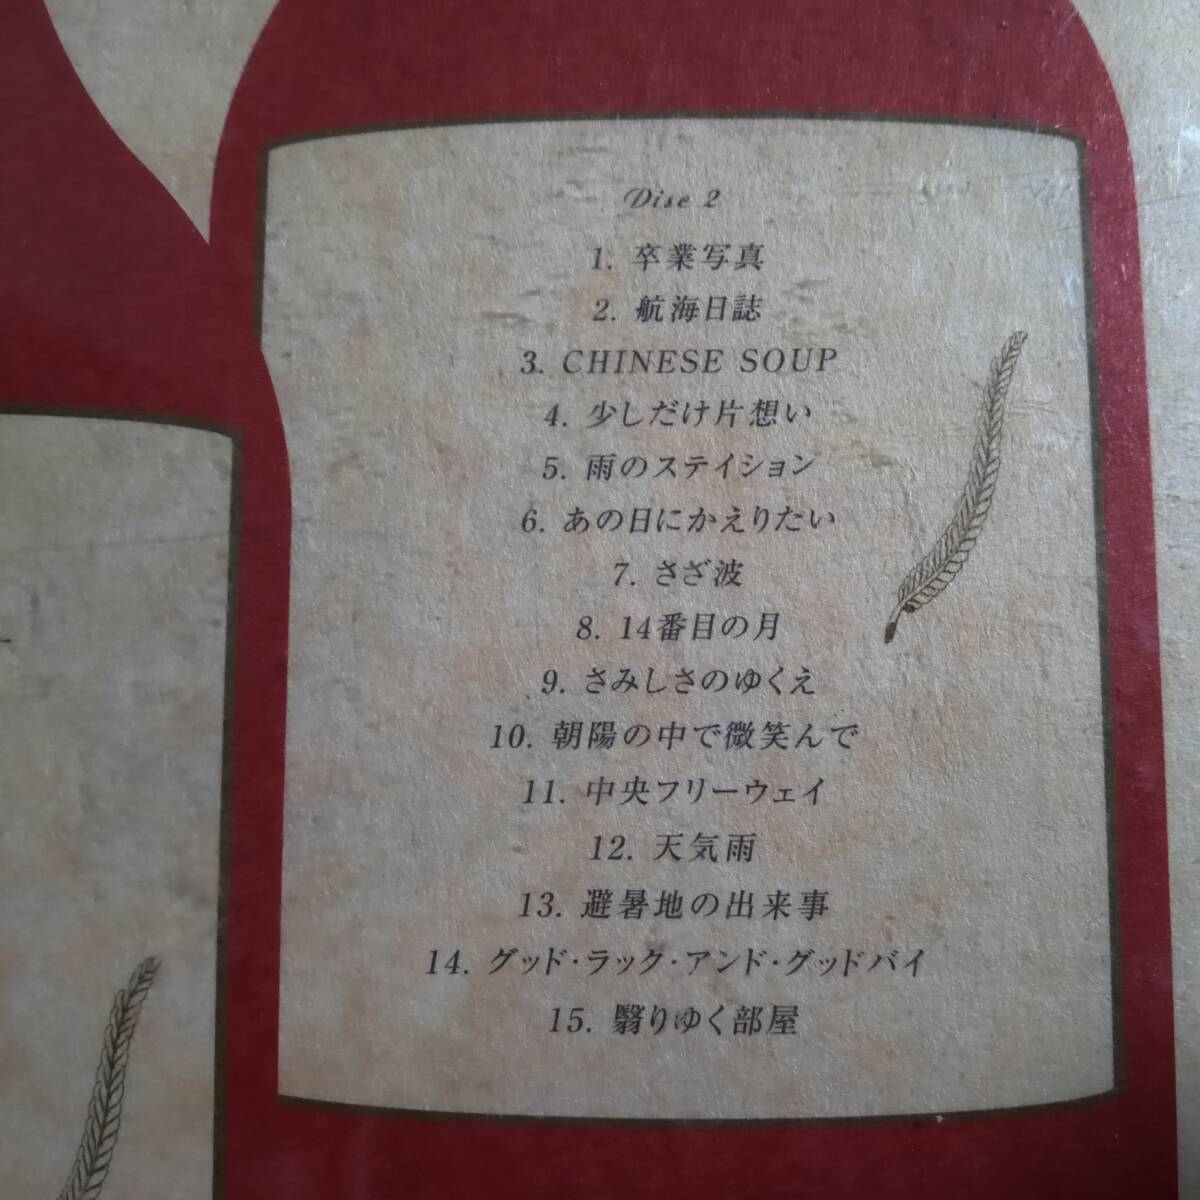 Disc 2
1. 卒業写真
2. 航海日誌
3. CHINESE SOUP
4. 少しだけ片想い
5. 雨のステイション
6. あの日にかえりたい
7. さざ波
8. 14番目の月
9. さみしさのゆくえ
10. 朝陽の中で微笑んで
11. 中央フリーウェイ
12. 天気雨
13. 避暑地の出来事
14. グッド・ラック・アンド・グッドバイ
15. 翳りゆく部屋